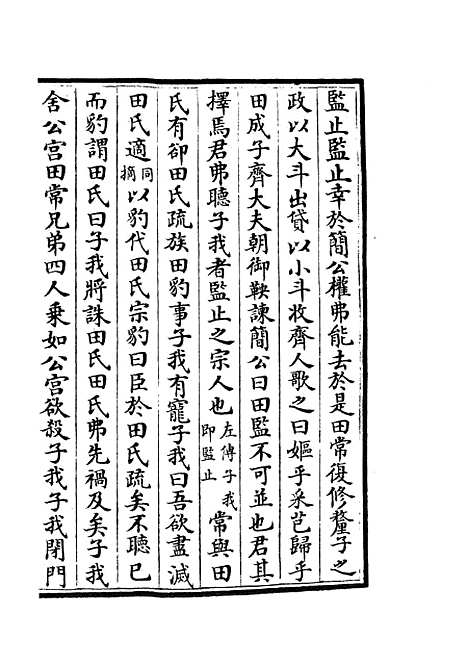 監止監止幸於簡公權弗能去於是田常復修釐子之
政以大斗出貸以小斗收齊人歌之曰嫗乎采芑歸乎
田成子齊大夫朝御鞅諫簡公曰田監不可並也君其
擇焉君弗聽子我者監止之宗人也左傳子我即監止常與田
氏有卻田氏疏族田豹事子我有寵子我曰吾欲盡滅
田氏適同摘以豹代田氏宗豹曰臣於田氏疏矣不聽已
而豹謂田氏曰子我將誅田氏田氏弗先禍及矣子我
舍公宮田常兄弟四人乗如公宮欲殺子我子我閉門